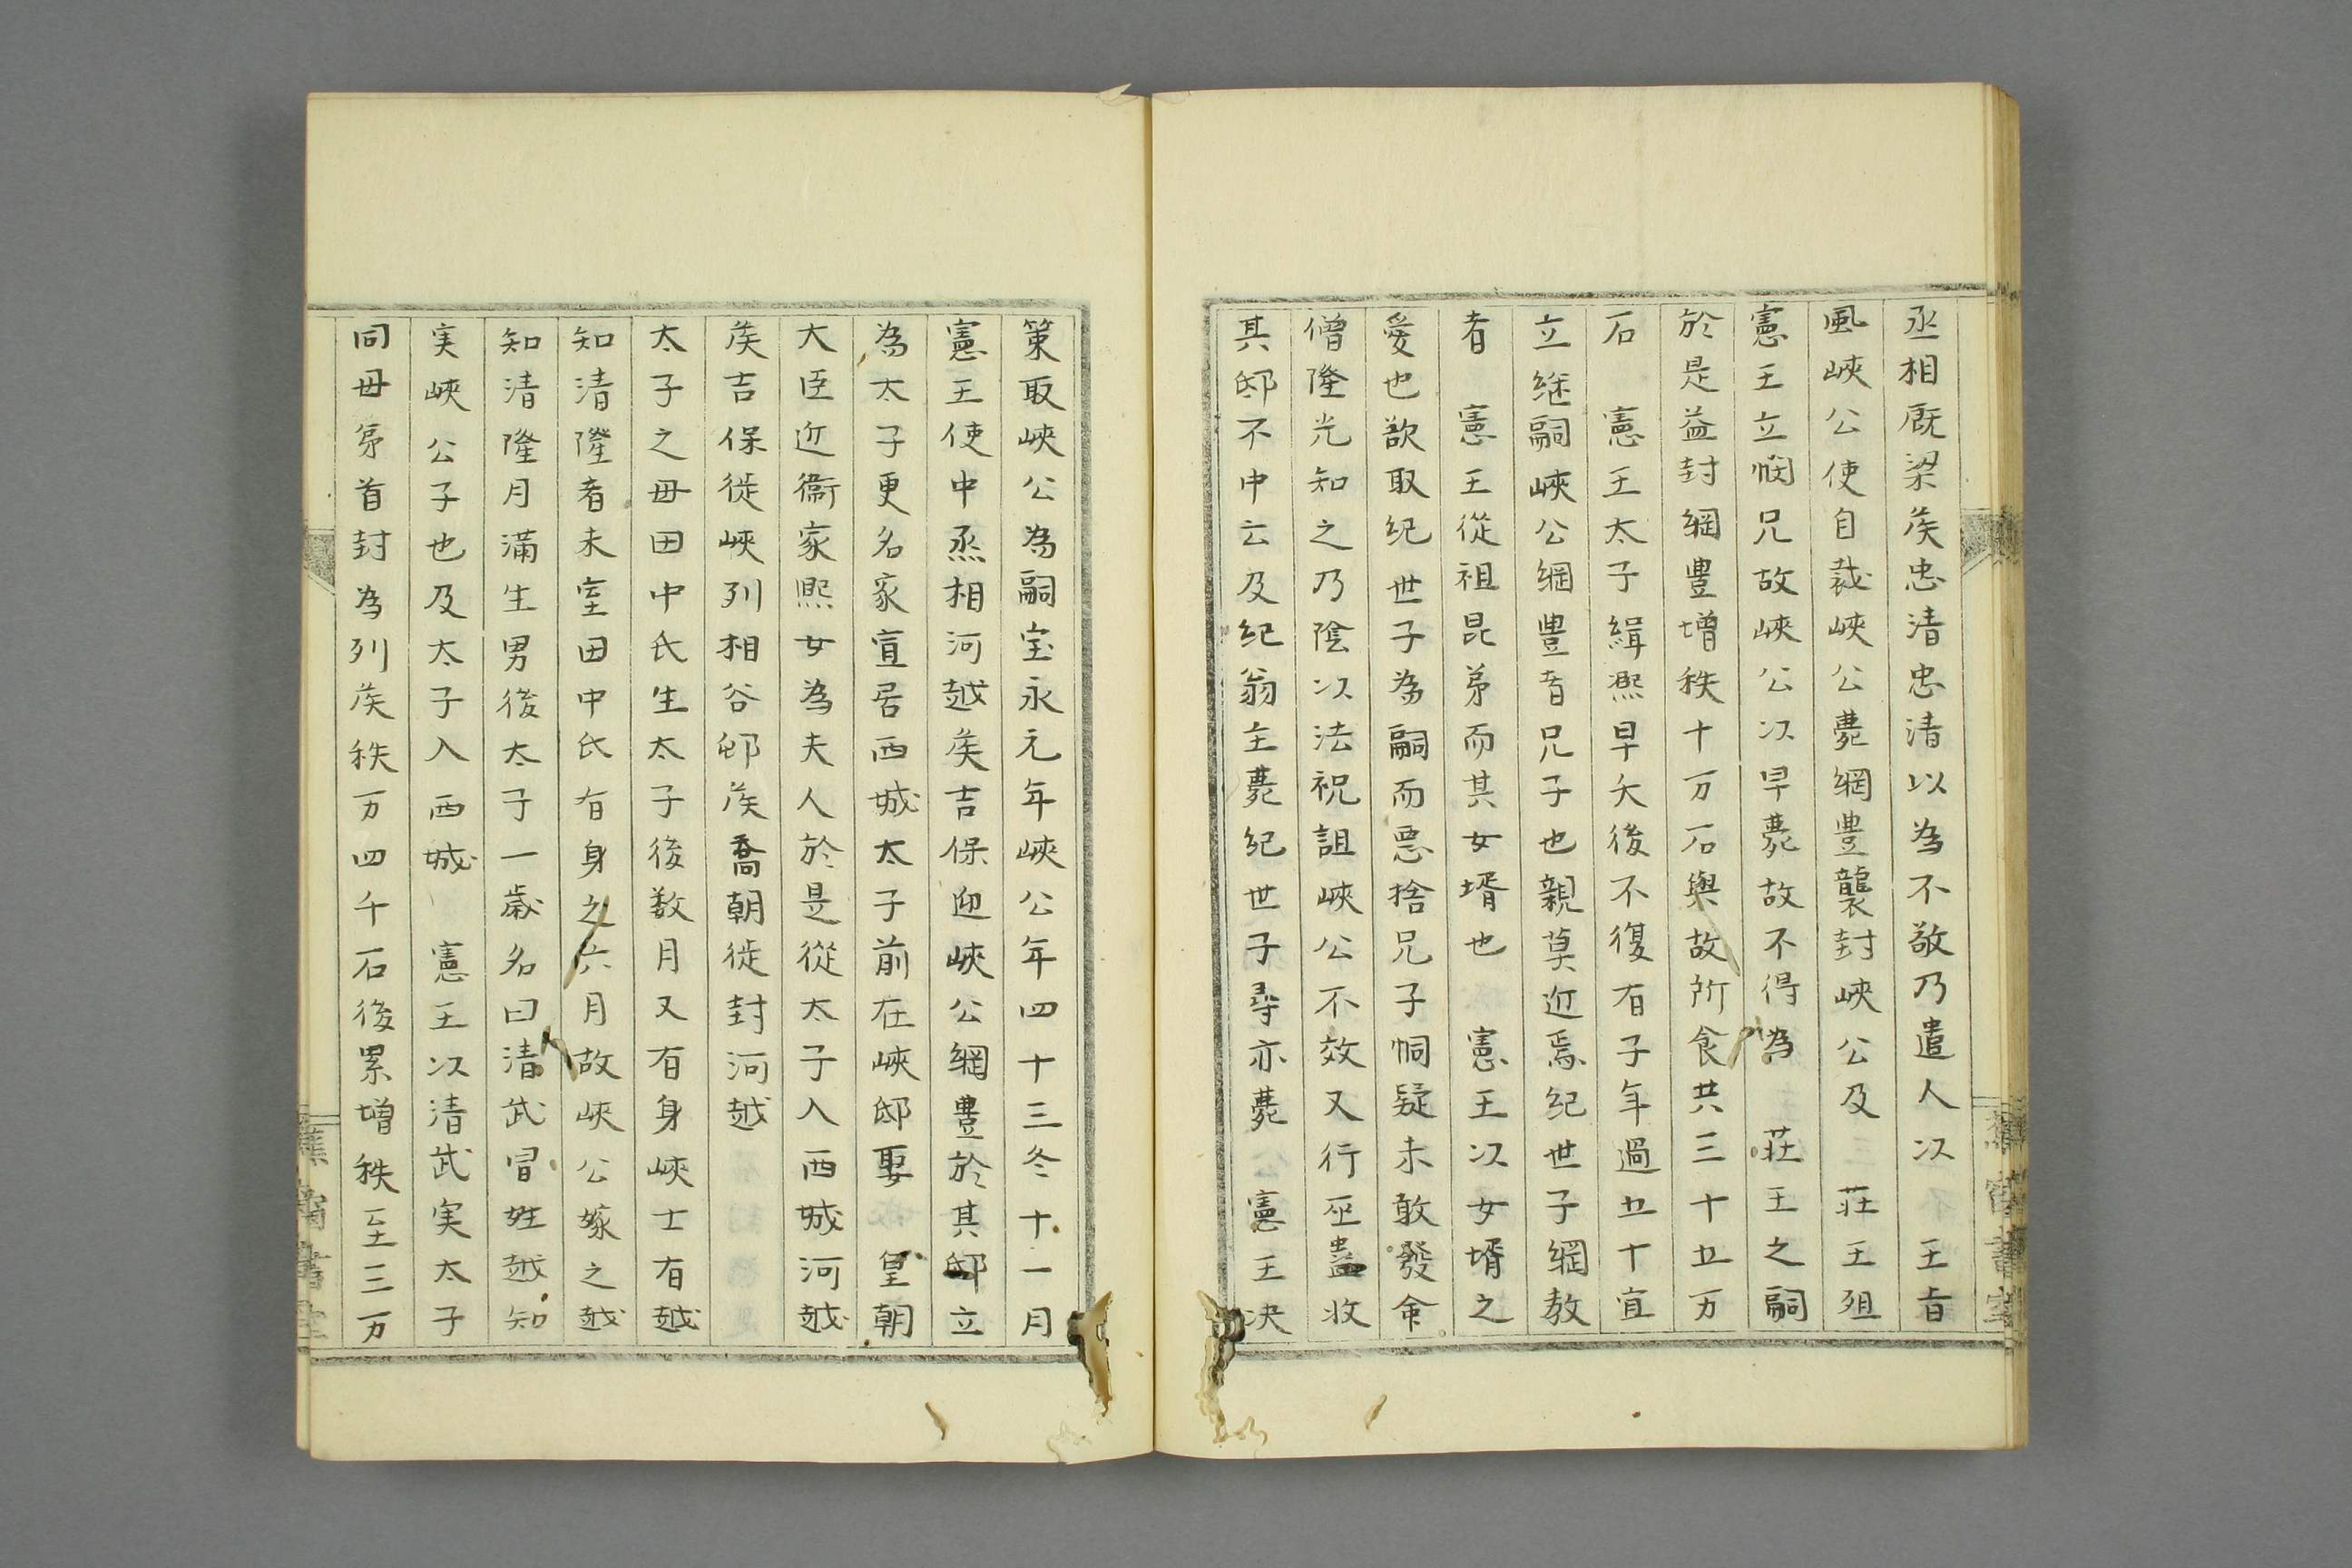 丞相厩梁矦忠清忠清以為不敬乃遣人以　王旨
風峽公使自裁峽公薨綱豊襲封峽公及　荘王殂
憲王立憫兄故峽公以早薨故不得為　荘王之嗣
於是益封綱豊増秩十万石與故所食共三十五万
石　憲王太子緝熙早夭後不復有子年過五十宜
立継嗣峽公綱豊者兄子也親莫近焉紀世子綱教
者　憲王從祖昆弟而其女壻也　憲王以女壻之
愛也欲取紀世子為嗣而悪捨兄子恫疑未敢發命
僧隆光知之乃陰以法祝詛峽公不效又行巫蠱收
其邸不中云及紀翁主薨紀世子尋亦薨　憲王决
策取峽公為嗣宝永元年峽公年四十三冬十一月
憲王使中烝相河越矦吉保迎峽公綱豊於其邸立
為太子更名家宣居西城太子前在峽邸娶　皇朝
大臣近衞家熈女為夫人於是從太子入西城河越
矦吉保徙峽列相谷邨矦喬朝徙封河越
太子之毋田中氏生太子後数月又有身峽士有越
知清隆者未室田中氏有身之六月故峽公嫁之越
知清隆月満生男後太子一歳名曰清武冒姓越知
実峽公子也及太子入西城　憲王以清武実太子
同毋弟首封為列矦秩万四千石後累増秩至三万